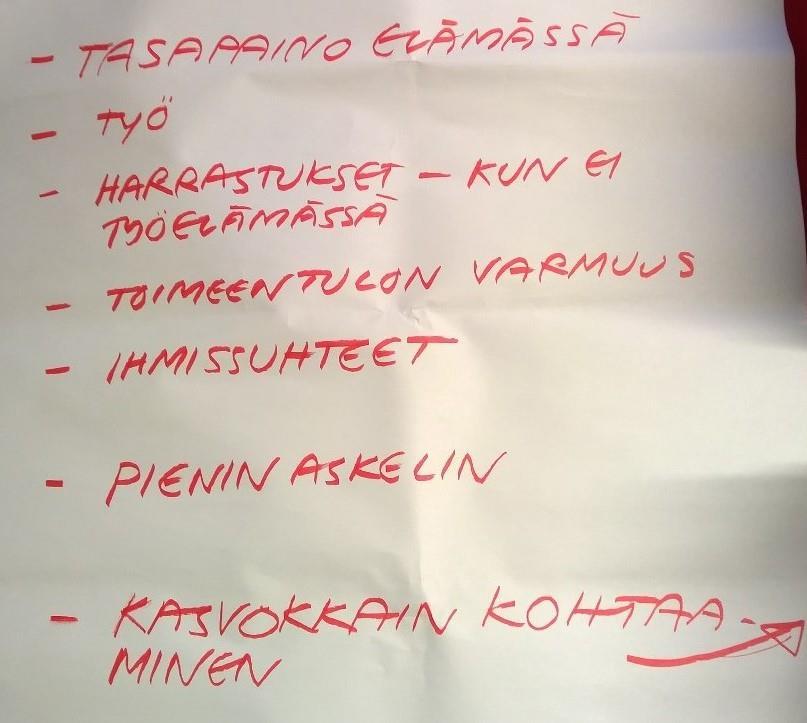 - TASAPAINO ELÄMÄSSÄ
- TYÖ
- HARRASTUKSET - KUN EI
TYÖELÄMÄSSÄ
- TOIMEENTULON VARMUUS
- IHMISSUHTEET
- PIENIN ASKELIN
- KASVOKKAIN KOHTAA-
MINEN